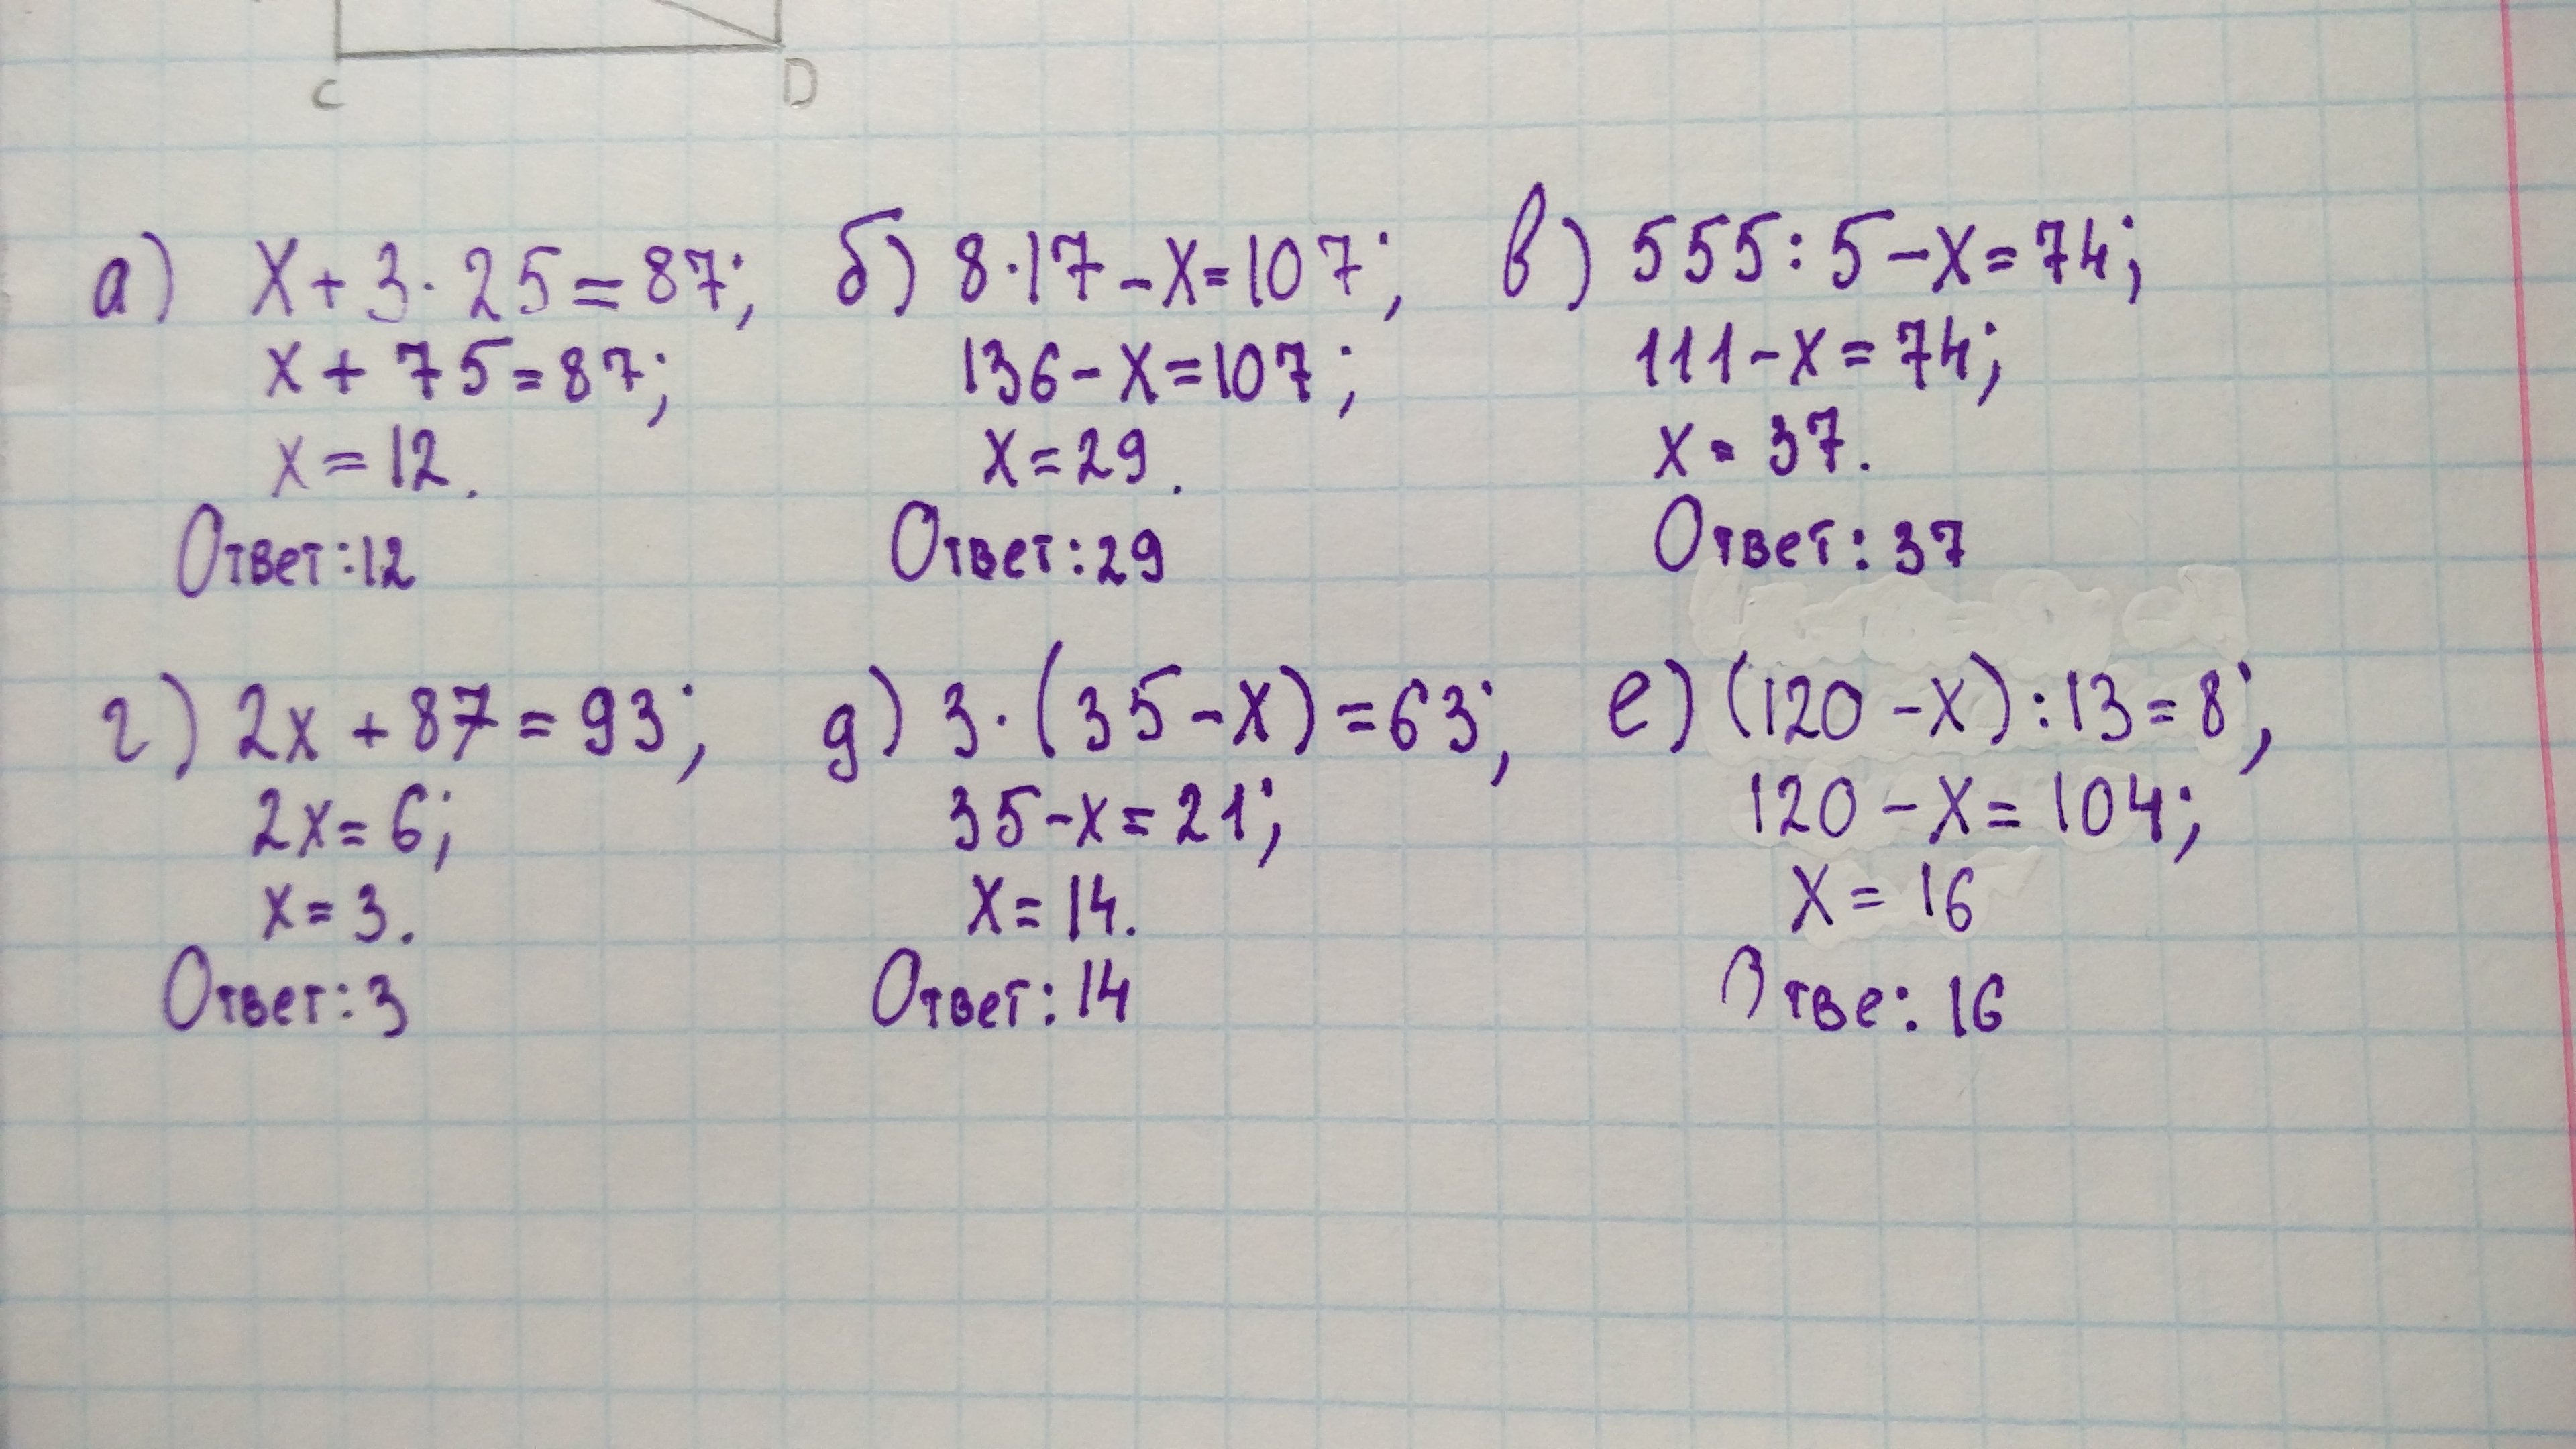 C D
а) x + 3 · 25 = 87;
x + 75 = 87;
x = 12.
Ответ: 12
б) 8 · 17 - x = 107;
136 - x = 107;
x = 29.
Ответ: 29
в) 555 : 5 - x = 74;
111 - x = 74;
x = 37.
Ответ: 37
г) 2x + 87 = 93;
2x = 6;
x = 3.
Ответ: 3
д) 3 · (35 - x) = 63;
35 - x = 21;
x = 14.
Ответ: 14
е) (120 - x) : 13 = 8;
120 - x = 104;
x = 16
Отве: 16